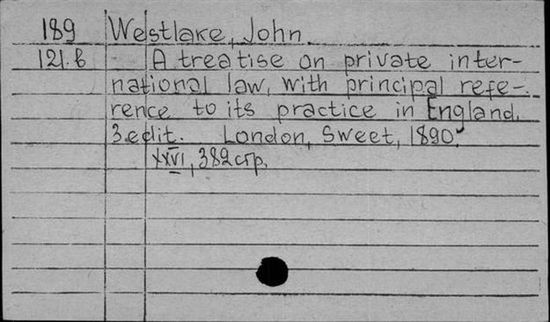 189 Westlake, John.
121.b A treatise on private inter-
national law, with principal refe-
rence to its practice in England.
3.edit. London, Sweet, 1890.
XXVI, 382 стр.